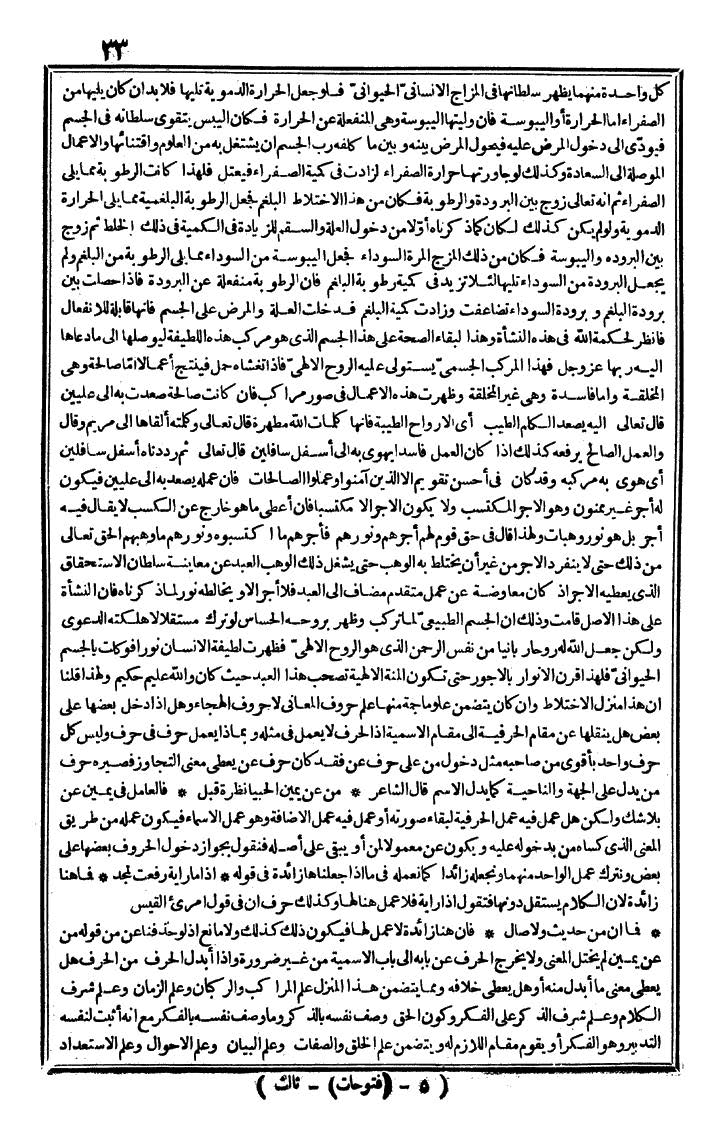 ٣٣
كل واحدة منهما يظهر سلطانها فى المزاج الانسانى الحيوانى فلو جعل الحرارة الدموية تليها فلا بد ان كان يليها من
الصفراء اما الحرارة أو اليبوسة فان وليتها اليبوسة وهى المنفعلة عن الحرارة فكان اليبس يتقوى سلطانه فى الجسم
فيؤدّى الى دخول المرض عليه فيصول المرض بينه و بين ما كلفه رب الجسم ان يشتغل به من العلوم واقتنائها والاعمال
الموصلة الى السعادة وكذلك لو جاورتها حرارة الصفراء لزادت فى كمية الصفراء فيعتل فلهذا كانت الرطوبة مما يلى
الصفراء ثم انه تعالى زوج بين البرودة والرطوبة فكان من هذا الاختلاط البلغم فجعل الرطوبة البلغمية مما يلى الحرارة
الدموية ولو لم يكن كذلك لكان كما ذكرناه أوّلا من دخول العلة والسقم للزيادة فى الكمية فى ذلك الخلط ثم زوج
بين البروده واليبوسة فكان من ذلك المزج المرة السوداء فجعل اليبوسة من السوداء مما يلى الرطوبة من البلغم ولم
يجعل البرودة من السوداء تليها لئلا تزيد فى كمية رطوبة البلغم فان الرطوبة منفعلة عن البرودة فاذا حصلت بين
برودة البلغم و برودة السوداء تضاعفت وزادت كمية البلغم فدخلت العلة والمرض على الجسم فانها قابلة للانفعال
فانظر لحكمة الله فى هذه النشأة وهذا لبقاء الصحة على هذا الجسم الذى هو مركب هذه اللطيفة ليوصلها الى ما دعاها
اليه ربها عز وجل فهذا المركب الجسمى يستولى عليه الروح الالهى فاذا تغشاه حمل فينتج أعمالا امّا صالحة وهى
المخلقة واما فاسدة وهى غير المخلقة وظهرت هذه الاعمال فى صور مراكب فان كانت صالحة صعدت به الى عليين
قال تعالى اليه يصعد الكلم الطيب أى الارواح الطيبة فانها كلمات الله مطهرة قال تعالى وكلمته ألقاها الى مريم وقال
والعمل الصالح يرفعه كذلك اذا كان العمل فاسدا يهوى به الى أسفل سافلين قال تعالى ثم رددناه أسفل سافلين
أى هوى به مركبه وقد كان فى أحسن تقويم الا الذين آمنوا وعملوا الصالحات فان عمله يصعد به الى عليين فيكون
له أجر غير ممنون وهو الاجر المكتسب ولا يكون الاجر الا مكتسبا فان أعطى ما هو خارج عن الكسب لا يقال فيه
أجر بل هو نور وهبات ولهذا قال فى حق قوم لهم أجرهم ونورهم فأجرهم ما اكتسبوه ونورهم ما وهبهم الحق تعالى
من ذلك حتى لا ينفرد الاجر من غير أن يختلط به الوهب حتى يشغل ذلك الوهب العبد عن معاينة سلطان الاستحقاق
الذى يعطيه الاجر اذ كان معاوضة عن عمل متقدم مضاف الى العبد فلا أجر الا و يخالطه نور لما ذكرناه فان النشأة
على هذا الاصل قامت وذلك ان الجسم الطبيعى لما تركب وظهر بروحه الحساس لو ترك مستقلا لاهلكته الدعوى
ولكن جعل الله له روحا ربانيا من نفس الرحمن الذى هو الروح الالهى فظهرت لطيفة الانسان نورا فوكلت بالجسم
الحيوانى فلهذا قرن الانوار بالاجور حتى تكون المنة الالهية تصحب هذا العبد حيث كان والله عليم حكيم ولهذا قلنا
ان هذا منزل الاختلاط وان كان يتضمن علوما جمة منها علم حروف المعانى لا حروف الهجاء وهل اذا دخل بعضها على
بعض هل ينقلها عن مقام الحرفية الى مقام الاسمية اذ الحرف لا يعمل فى مثله و بماذا يعمل حرف فى حرف وليس كل
حرف واحد بأقوى من صاحبه مثل دخول من على حرف عن فقد كان حرف عن يعطى معنى التجاوز فصيره حرف
من يدل على الجهة والناحية كما يدل الاسم قال الشاعر * من عن يمين الحبيا نظرة قبل * فالعامل فى يمين عن
بلا شك ولكن هل عمل فيه عمل الحرفية لبقاء صورته أو عمل فيه عمل الاضافة وهو عمل الاسماء فيكون عمله من طريق
المعنى الذى كساه من بدخوله عليه و يكون عن معمولا لمن أو يبقى على أصله فنقول بجواز دخول الحروف بعضها على
بعض ونترك عمل الواحد منهما ونجعله زائدا كما نعمله فى ما اذا جعلناها زائدة فى قوله * اذا ما راية رفعت لمجد * فما هنا
زائدة لان الكلام يستقل دونها فتقول اذا راية فلا عمل هنا لها وكذلك حرف ان فى قول امرئ القيس
* فما ان من حديث ولا صال * فان هنا زائدة لا عمل لها فيكون ذلك كذلك ولا مانع اذ لو حذفنا عن من قوله من
عن يمين لم يختل المعنى ولا يخرج الحرف عن بابه الى باب الاسمية من غير ضرورة واذا أبدل الحرف من الحرف هل
يعطى معنى ما أبدل منه أو هل يعطى خلافه ومما يتضمن هذا المنزل علم المراكب والركبان وعلم الزمان وعلم شرف
الكلام وعلم شرف الذكر على الفكر وكون الحق وصف نفسه بالذكر وما وصف نفسه بالفكر مع انه أثبت لنفسه
التدبير وهو الفكر أو يقوم مقام اللازم له و يتضمن علم الخلق والصفات وعلم البيان وعلم الاحوال وعلم الاستعداد
( ٥ - (فتوحات) - ثالث )